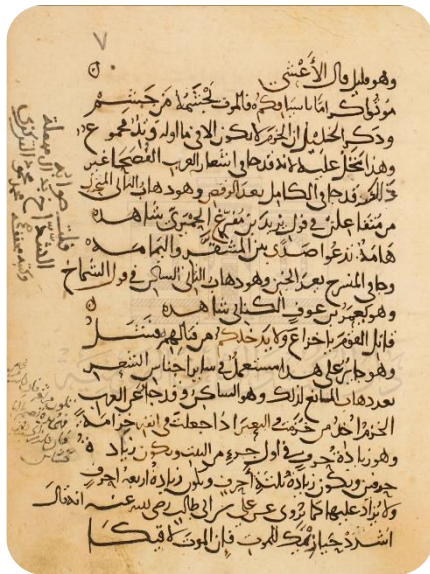 ٧
وهو قليل قال الأعشى
موتوا كراما باسيافكم فالموت يجشمه من جشم
وذكر الخليل ان الخرم لا يكون الا في ما اوله وتد مجموع
وهذا مختل عليه لانه قد جا في اشعار العرب الفصحا غير
ذلك فقد جا في الكامل بعد الوقص وهو ذهاب الثاني المتحرك
من متفاعلن في قول يزيد بن مفرغ الحميري شاهده
هامة تدعوا صدى بين المشقر واليمامه
وجا في المنسرح بعد الخبن وهو ذهاب الثاني الساكن في قول الشماخ
وهو يعمر بن عوف الكناني شاهده
قاتل القوم يا خزاع ولا يدخلكم من قتالهم فشل
وهو جايز على هذا مستعمل في ساير اجناس الشعر
بعد ذهاب المانع لذلك وهو الساكن وقد جا عن العرب
الخزم اخذ من خزمت البعير اذا جعلت في انفه خزامة
وهو زيادة تجي في اول جزء من البيت ويكون زيادة
حرفين ويكون زيادة ثلثة احرف وتكون زيادة اربعة احرف
ولا يزاد عليها كما يروى عن علي بن ابي طالب رضي الله عنه انه قال
اشدد حيازيمك للموت فان الموت لاقيكا
قلت صوابه
الشداخ بدال مهملة
وكتبه محمد محمود التركزي